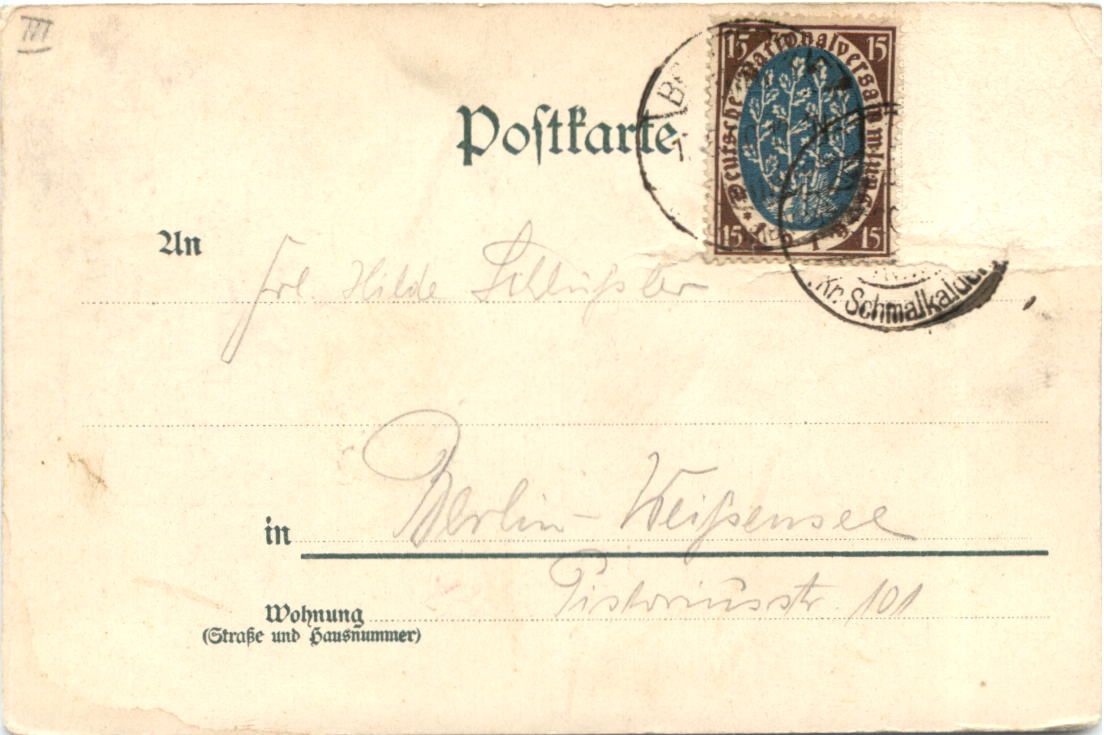 III
Postkarte
15 15
Deutsche Nationalversammlung
1919
15 15
Kr. Schmalkalden
An Frl. Hilde Schlüßler
in Berlin-Weißensee
Wohnung Pistoriusstr. 101
(Straße und Hausnummer)